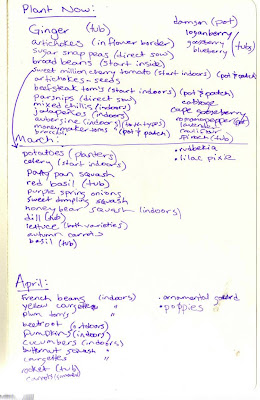 Plant Now:
Ginger (tub)
artichokes (in flower border)
sugar snap peas (direct sow)
broad beans (start inside)
sweet million cherry tomato (start indoors) (pot & patch)
artichokes - seeds
beefsteak tom's (start indoors) (pot & patch)
parsnips (direct sow)
mixed chillis (indoors)
jalapenos (indoors)
aubergine (indoors) (both types)
moneymaker toms (pot & patch)
broccoli
damson (pot)
loganberry
gooseberry
blueberry (tubs)
cabbage
cape gooseberry
romano pepper
lavender
cauliflower
spinach (tub)
March:
potatoes (planters)
celery (start indoors)
patty pan squash
red basil (tub)
purple spring onions
sweet dumpling squash
honey bear squash (indoors)
dill (tub)
lettuce (both varieties)
autumn carrots
basil (tub)
• rudbekia
• lilac pixie
April:
French beans (indoors)
yellow courgettes "
plum tom's "
beetroot (outdoors)
pumpkins (indoors)
cucumbers (indoors)
butternut squash "
courgettes "
rocket (tub)
• ornamental gourd
• poppies "